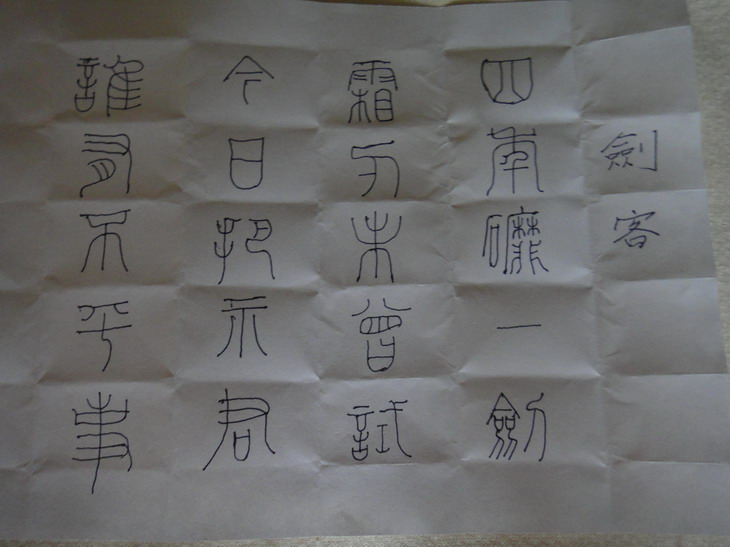 劍客
四年䃺一劒
霜刃未曾試
今日把示君
誰有不平事